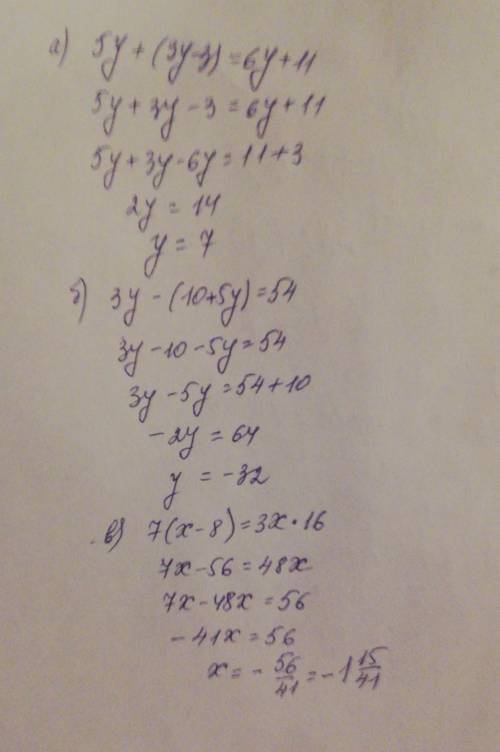 а) 5y + (3y-3) = 6y+11
5y + 3y - 3 = 6y+11
5y+3y-6y = 11+3
2y = 14
y = 7
б) 3y - (10+5y) = 54
3y-10-5y = 54
3y-5y = 54+10
-2y = 64
y = -32
в) 7(x-8) = 3x·16
7x-56 = 48x
7x-48x = 56
-41x = 56
x = - 56/41 = -1 15/41